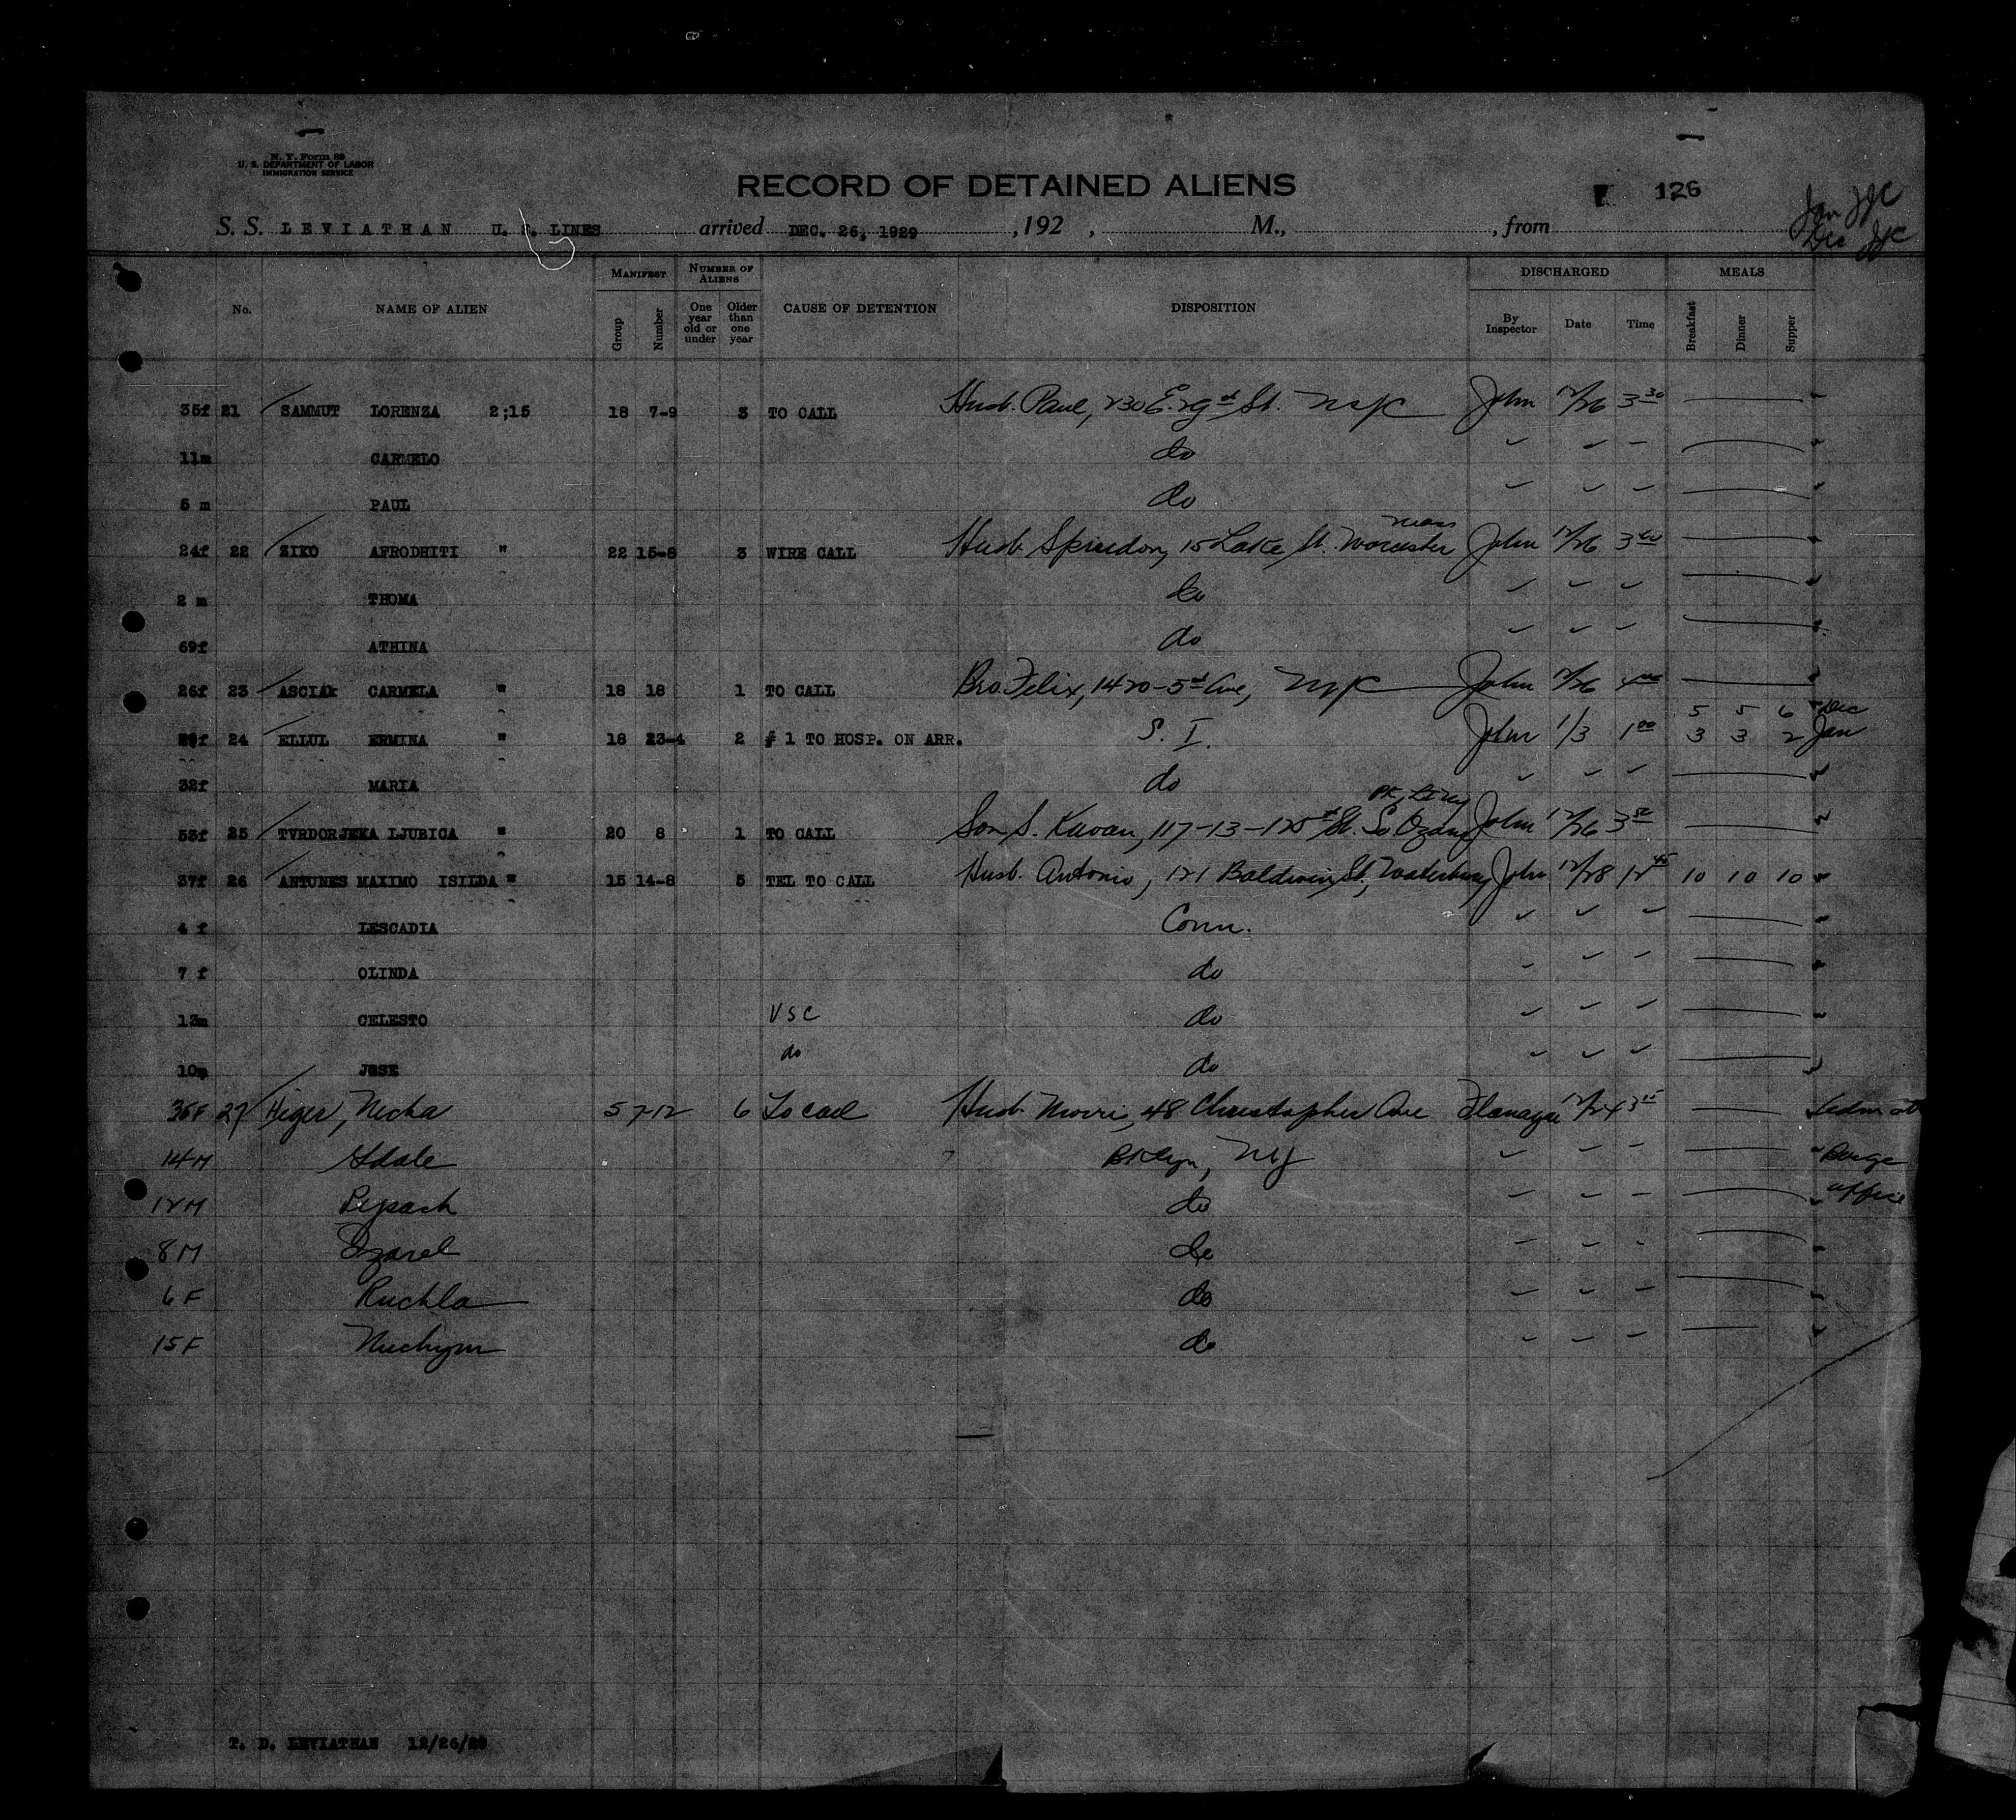 N. Y. Form 89
U. S. DEPARTMENT OF LABOR
IMMIGRATION SERVICE
RECORD OF DETAINED ALIENS
126
Jan JJC
Dec JJC
S. S. LEVIATHAN U. S. LINES arrived DEC. 26, 1929 , 192 , M., , from
No. NAME OF ALIEN MANIFEST NUMBER OF ALIENS CAUSE OF DETENTION DISPOSITION DISCHARGED MEALS
Group Number One year old or under Older than one year By Inspector Date Time Breakfast Dinner Supper
35f 21 SAMMUT LORENZA 2;15 18 7-9 3 TO CALL Husb. Paul, 230 E. 29th St. NYC John 12/26 3 30
11m CARMELO do
5 m PAUL do
24f 22 ZIKO AFRODHITI " 22 15-8 3 WIRE CALL Husb. Spiridon, 15 Lake St. Worcester Mass John 12/26 3 40
2 m THOMA do
69f ATHINA do
26f 23 ASCIAK CARMELA " 18 18 1 TO CALL Bro. Felix, 1420-5th Ave, NYC John 12/26 4 00
5 5 6 Dec
24 ELLUL ERMINA " 18 23-4 2 # 1 TO HOSP. ON ARR. S. I. John 1/3 1 00 3 3 2 Jan
32f MARIA do
53f 25 TVRDORJEKA LJUBICA " 20 8 1 TO CALL Son S. Kuvan, 117-13-125th St. So Ozone Pk, LI NY John 12/26 3 50
37f 26 ANTUNES MAXIMO ISILDA " 15 14-8 5 TEL TO CALL Husb. Antonio, 121 Baldwin St, Waterbury John 12/28 12 45 10 10 10
4 f LESCADIA Conn.
7 f OLINDA do
13m CELESTO VSC do
10m JOSE do do
36F 27 Higer, Necha 5 7-12 6 To call Husb. Morris, 48 Christopher Ave Flanagan 12/24 3 15
14M Idale Bklyn, NY Barge
12M Pejsach do office
8M Izarel do
6F Ruchla do
15F Nuchym do
T. D. LEVIATHAN 12/26/29